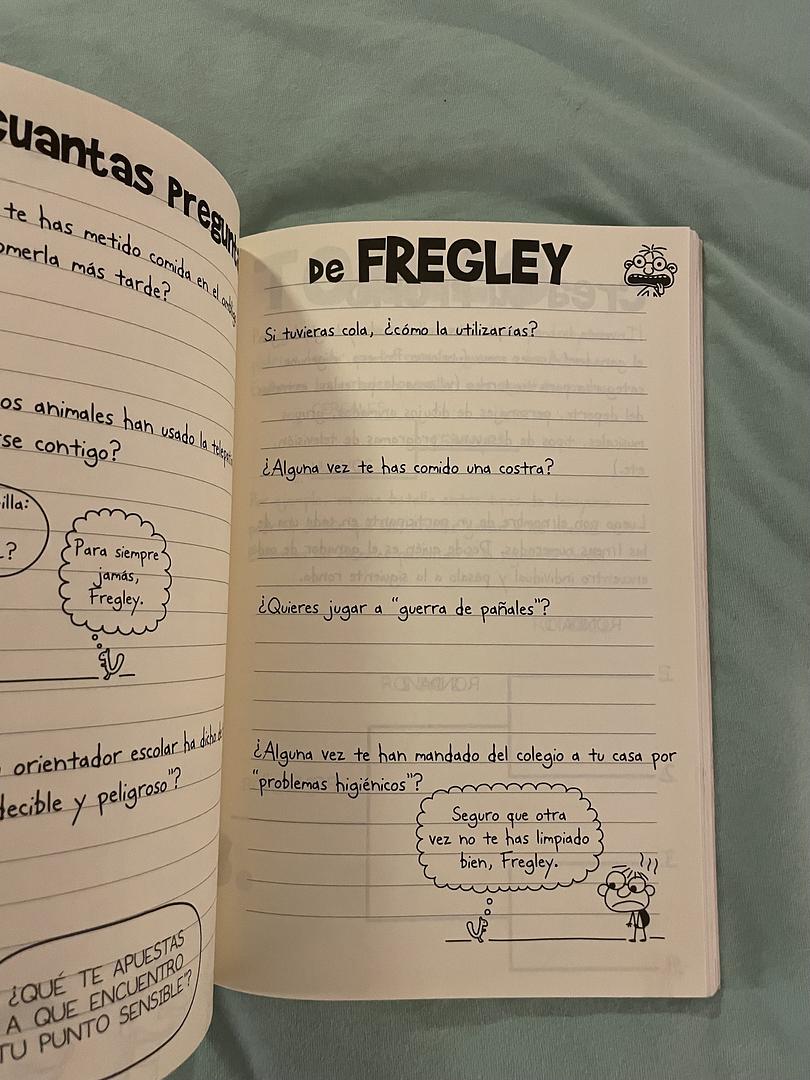 cuantas Pregunt
te has metido comida en el
omerla más tarde?
os animales han usado la
rse contigo?
illa:
?
Para siempre
jamás,
Fregley.
orientador escolar ha dicho
decible y peligroso"?
¿QUÉ TE APUESTAS
A QUE ENCUENTRO
TU PUNTO SENSIBLE?
De FREGLEY
Si tuvieras cola, ¿cómo la utilizarías?
¿Alguna vez te has comido una costra?
¿Quieres jugar a "guerra de pañales"?
¿Alguna vez te han mandado del colegio a tu casa por
"problemas higiénicos"?
Seguro que otra
vez no te has limpiado
bien, Fregley.